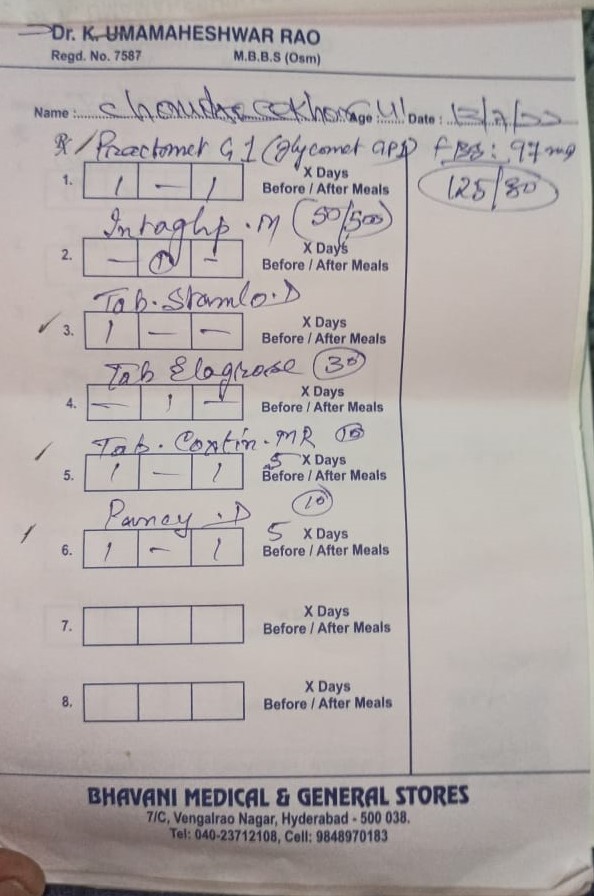 Dr. K. UMAMAHESHWAR RAO
Regd. No. 7587 M.B.B.S (Osm)
Name : Age Date :
G1 (Glycomet GP1) FBS: 97 mg
1. 1 — 1 X Days
Before / After Meals 125/80
M (50/500)
2. — 1 — X Days
Before / After Meals
Tab. Stamlo.D
3. 1 — — X Days
Before / After Meals
Tab 30
4. — 1 — X Days
Before / After Meals
Tab. MR 10
5. 1 — 1 5 X Days
Before / After Meals
D 10
6. 1 — 1 5 X Days
Before / After Meals
7. X Days
Before / After Meals
8. X Days
Before / After Meals
BHAVANI MEDICAL & GENERAL STORES
7/C, Vengalrao Nagar, Hyderabad - 500 038.
Tel: 040-23712108, Cell: 9848970183